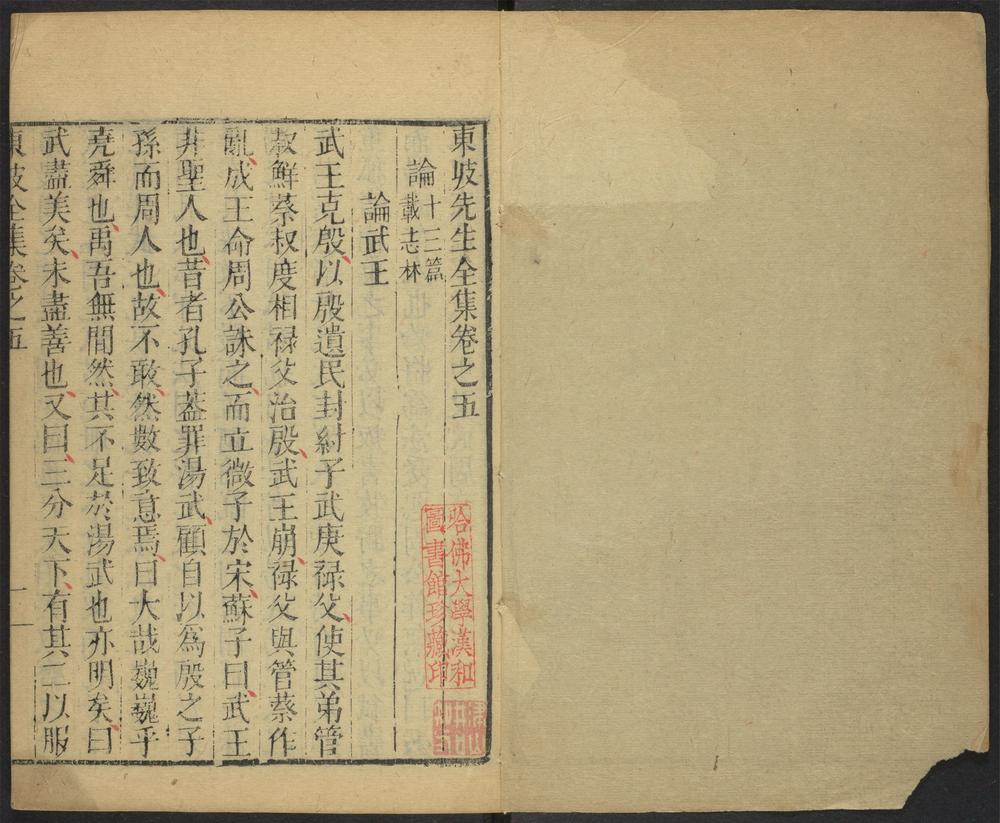 東坡先生全集卷之五
論十三篇
載志林
論武王
武王克殷以殷遺民封紂子武庚祿父使其弟管
叔鮮蔡叔度相祿父治殷武王崩祿父與管蔡作
亂成王命周公誅之而立微子於宋蘇子曰武王
非聖人也昔者孔子蓋罪湯武顧自以為殷之子
孫而周人也故不敢然數致意焉曰大哉巍巍乎
堯舜也禹吾無間然其不足於湯武也亦明矣曰
武盡美矣未盡善也又曰三分天下有其二以服
東坡全集卷之五
一
哈佛大學漢和
圖書館珍藏印